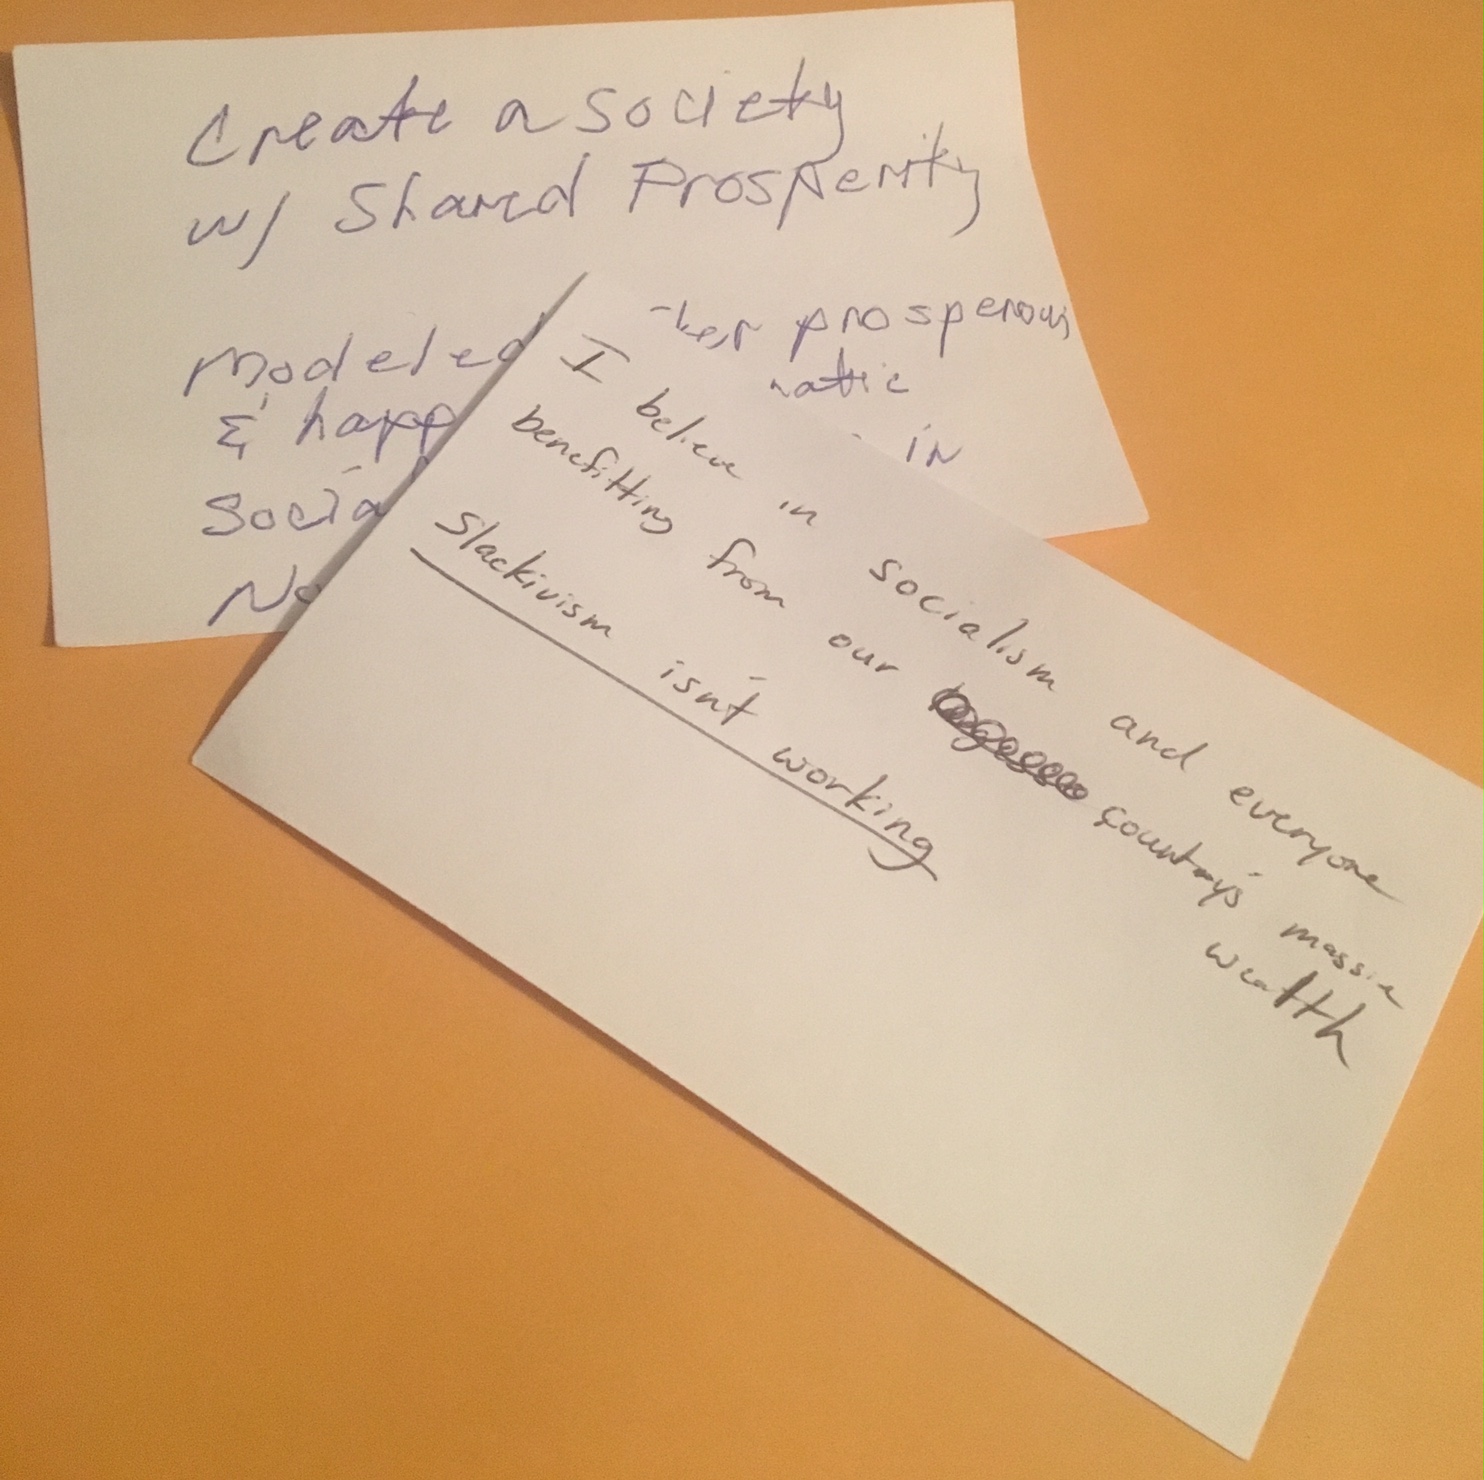 Create a society
w/ Shared Prosperity
Modeled prosperous
& happ
Socia in
No
I believe in socialism and everyone
benefitting from our country's massive
wealth
Slackivism isn't working